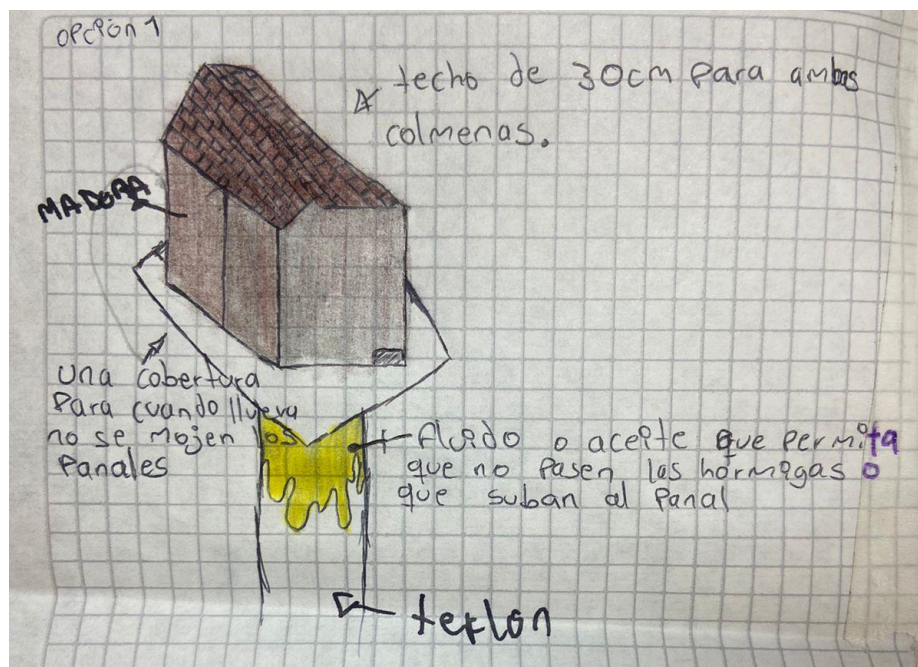 opción 1
techo de 30cm para ambas
colmenas.
MADERA
una cobertura
para cuando llueva
no se mojen los
panales
fluido o aceite que permita
que no pasen las hormigas o
que suban al panal
teflon